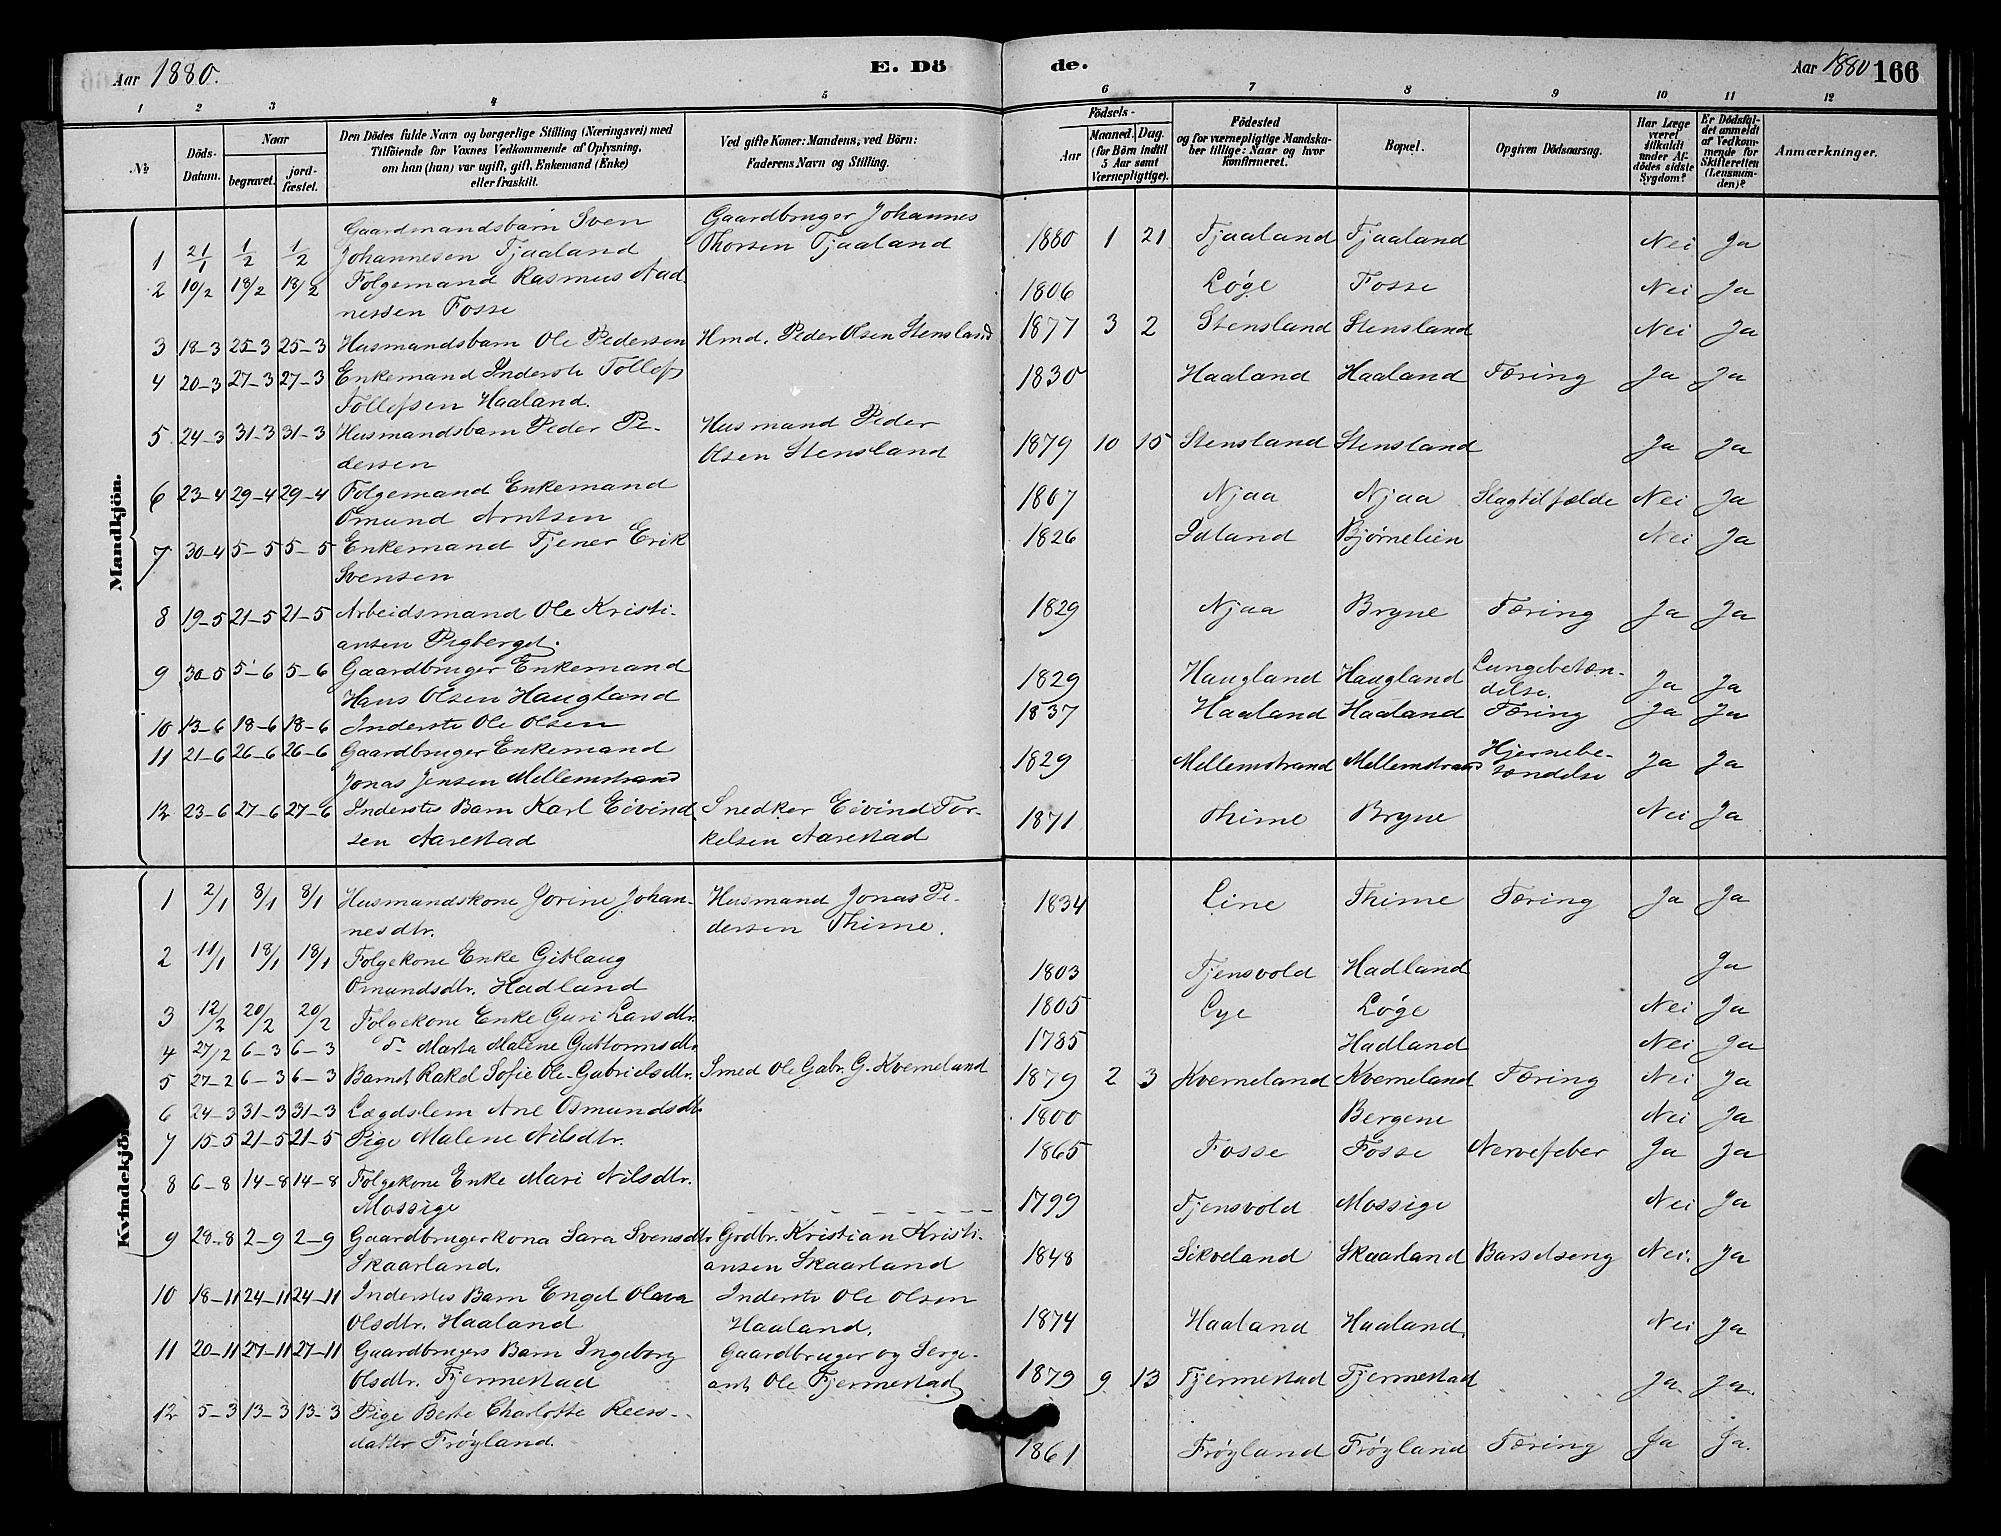 Aar 1880. E. Dö de. Aar 1880 166
1 2 3 4 5 6 7 8 9 10 11 12
No Döds-Datum. Naar begravet. jordfæstet. Den Dödes fulde Navn og borgerlige Stilling (Næringsvei) med Tilföiende for Voxnes Vedkommende af Oplysning, om han (hun) var ugift, gift, Enkemand (Enke) eller fraskilt. Ved gifte Koner: Mandens, ved Börn: Faderens Navn og Stilling. Födsels- Aar Maaned. Dag. (for Börn indtil 5 Aar samt Værnepligtige). Födested og for værnepligtige Mandskaber tillige: Naar og hvor konfirmeret. Bopæl. Opgiven Dödsaarsag. Har Læge været tilkaldt under Afdödes sidste Sygdom? Er Dödsfaldet anmeldt af Vedkommende for Skifteretten (Lensmanden)? Anmærkninger.
Mandkjön.
1 21/1 1/2 1/2 Gaardmandsbarn Sven Gaardbruger Johannes
Johannesen Tjaaland Thorsen Tjaaland 1880 1 21 Tjaaland Tjaaland Nei Ja
2 10/2 18/2 18/2 Folgemand Rasmus Aad 1806 Løge Fosse Nei Ja
nessen Fosse
3 18-3 25-3 25-3 Husmandsbarn Ole Pedersen Hmd. Peder Olsen Stensland 1877 3 2 Stensland Stensland Nei Ja
4 20-3 27-3 27-3 Enkemand Inderste Tollef 1830 Haaland Haaland Tæring Ja Ja
Tollefsen Haaland.
5 24-3 31-3 31-3 Husmandsbarn Peder Pe- Husmand Peder
dersen Olsen Stensland 1879 10 15 Stensland Stensland Ja Ja
6 23-4 29-4 29-4 Folgemand Enkemand 1807 Njaa Njaa Slagtilfælde Nei Ja
Omund Arntsen
7 30-4 5-5 5-5 Enkemand Tjener Erik 1826 Idland Bjørnelien Nei Ja
Svensen
8 19-5 21-5 21-5 Arbeidsmand Ole Kristi- 1829 Njaa Bryne Tæring Ja Ja
ansen Pigberget.
9 30-5 5-6 5-6 Gaardbruger Enkemand 1829 Haugland Haugland Lungebetæn-
Hans Olsen Haugland delse. Ja Ja
10 13-6 18-6 18-6 Inderste Ole Olsen 1837 Haaland Haaland Tæring Ja Ja
11 21-6 26-6 26-6 Gaardbruger Enkemand 1829 Mellemstrand Mellemstrand Hjernebe-
Jonas Jensen Mellemstrand tændelse Ja Ja
12 23-6 27-6 27-6 Inderstes Barn Karl Eivind Snedker Eivind Tor- 1871 Thime Bryne Nei Ja
sen Aarestad kelsen Aarestad
Kvindekjön.
1 2/1 8/1 8/1 Husmandskone Jorine Johan- Husmand Jonas Pe- 1834 Line Thime Tæring Ja Ja
nesdtr. dersen Thime.
2 11/1 18/1 18/1 Folgekone Enke Gitlaug 1803 Tjensvold Hadland Ja
Omundsdtr. Hadland
3 12/2 20/2 20/2 Folgekone Enke Guri Larsdtr. 1805 Lye Løge Nei Ja
4 27/2 6-3 6-3 do Marta Malene Guttormsdtr. 1785 Hadland Nei Ja
5 27-2 6-3 6-3 Barnet Rakel Sofie Ole-Gabrielsdtr. Smed Ole Gabr. G. Kverneland 1879 2 3 Kverneland Kverneland Tæring Nei Ja
6 24-3 31-3 31-3 Lægdslem Ane Osmundsdtr. 1800 Bergene Nei Ja
7 15-5 21-5 21-5 Pige Malene Nilsdtr. 1865 Fosse Fosse Nervefeber Ja Ja
8 6-8 14-8 14-8 Folgekone Enke Mari Nilsdtr. 1799 Tjensvold Mossige Nei Ja
Mossige
9 28-8 2-9 2-9 Gaardbrugerkona Sara Svensdtr Grdbr. Kristian Kristi- 1848 Sikveland Skaarland Barselseng Nei. Ja
Skaarland. ansen Skaarland
10 18-11 24-11 24-11 Inderstes Barn Engel Olava Inderste Ole Olsen
Olsdtr. Haaland Haaland. 1874 Haaland Haaland. Nei Ja
11 20-11 27-11 27-11 Gaardbrugers Barn Ingeborg Gaardbruger og Serge-
Olsdtr. Tjermestad ant Ole Tjermestad 1879 9 13 Tjermestad Tjermestad Ja Ja.
12 5-3 13-3 13-3 Pige Berte Charlotte Reers-
datter Frøyland. 1861 Frøyland Frøyland Tæring Ja Ja.